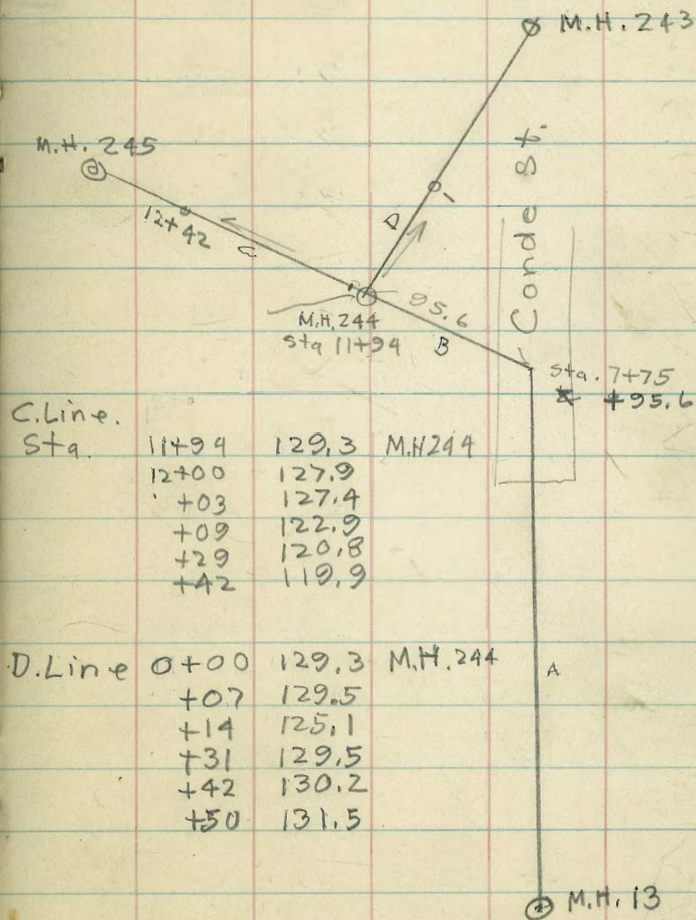 M.H. 243
M.H. 245
12+42
C
D
1
Conde St.
95.6
M.H. 244
Sta 11+94
B
Sta. 7+75
+95.6
C.Line.
Sta. 11+94 129.3 M.H 244
12+00 127.9
+03 127.4
+09 122.9
+29 120.8
+42 119.9
D.Line 0+00 129.3 M.H. 244
+07 129.5
+14 125.1
+31 129.5
+42 130.2
+50 131.5
A
M.H. 13